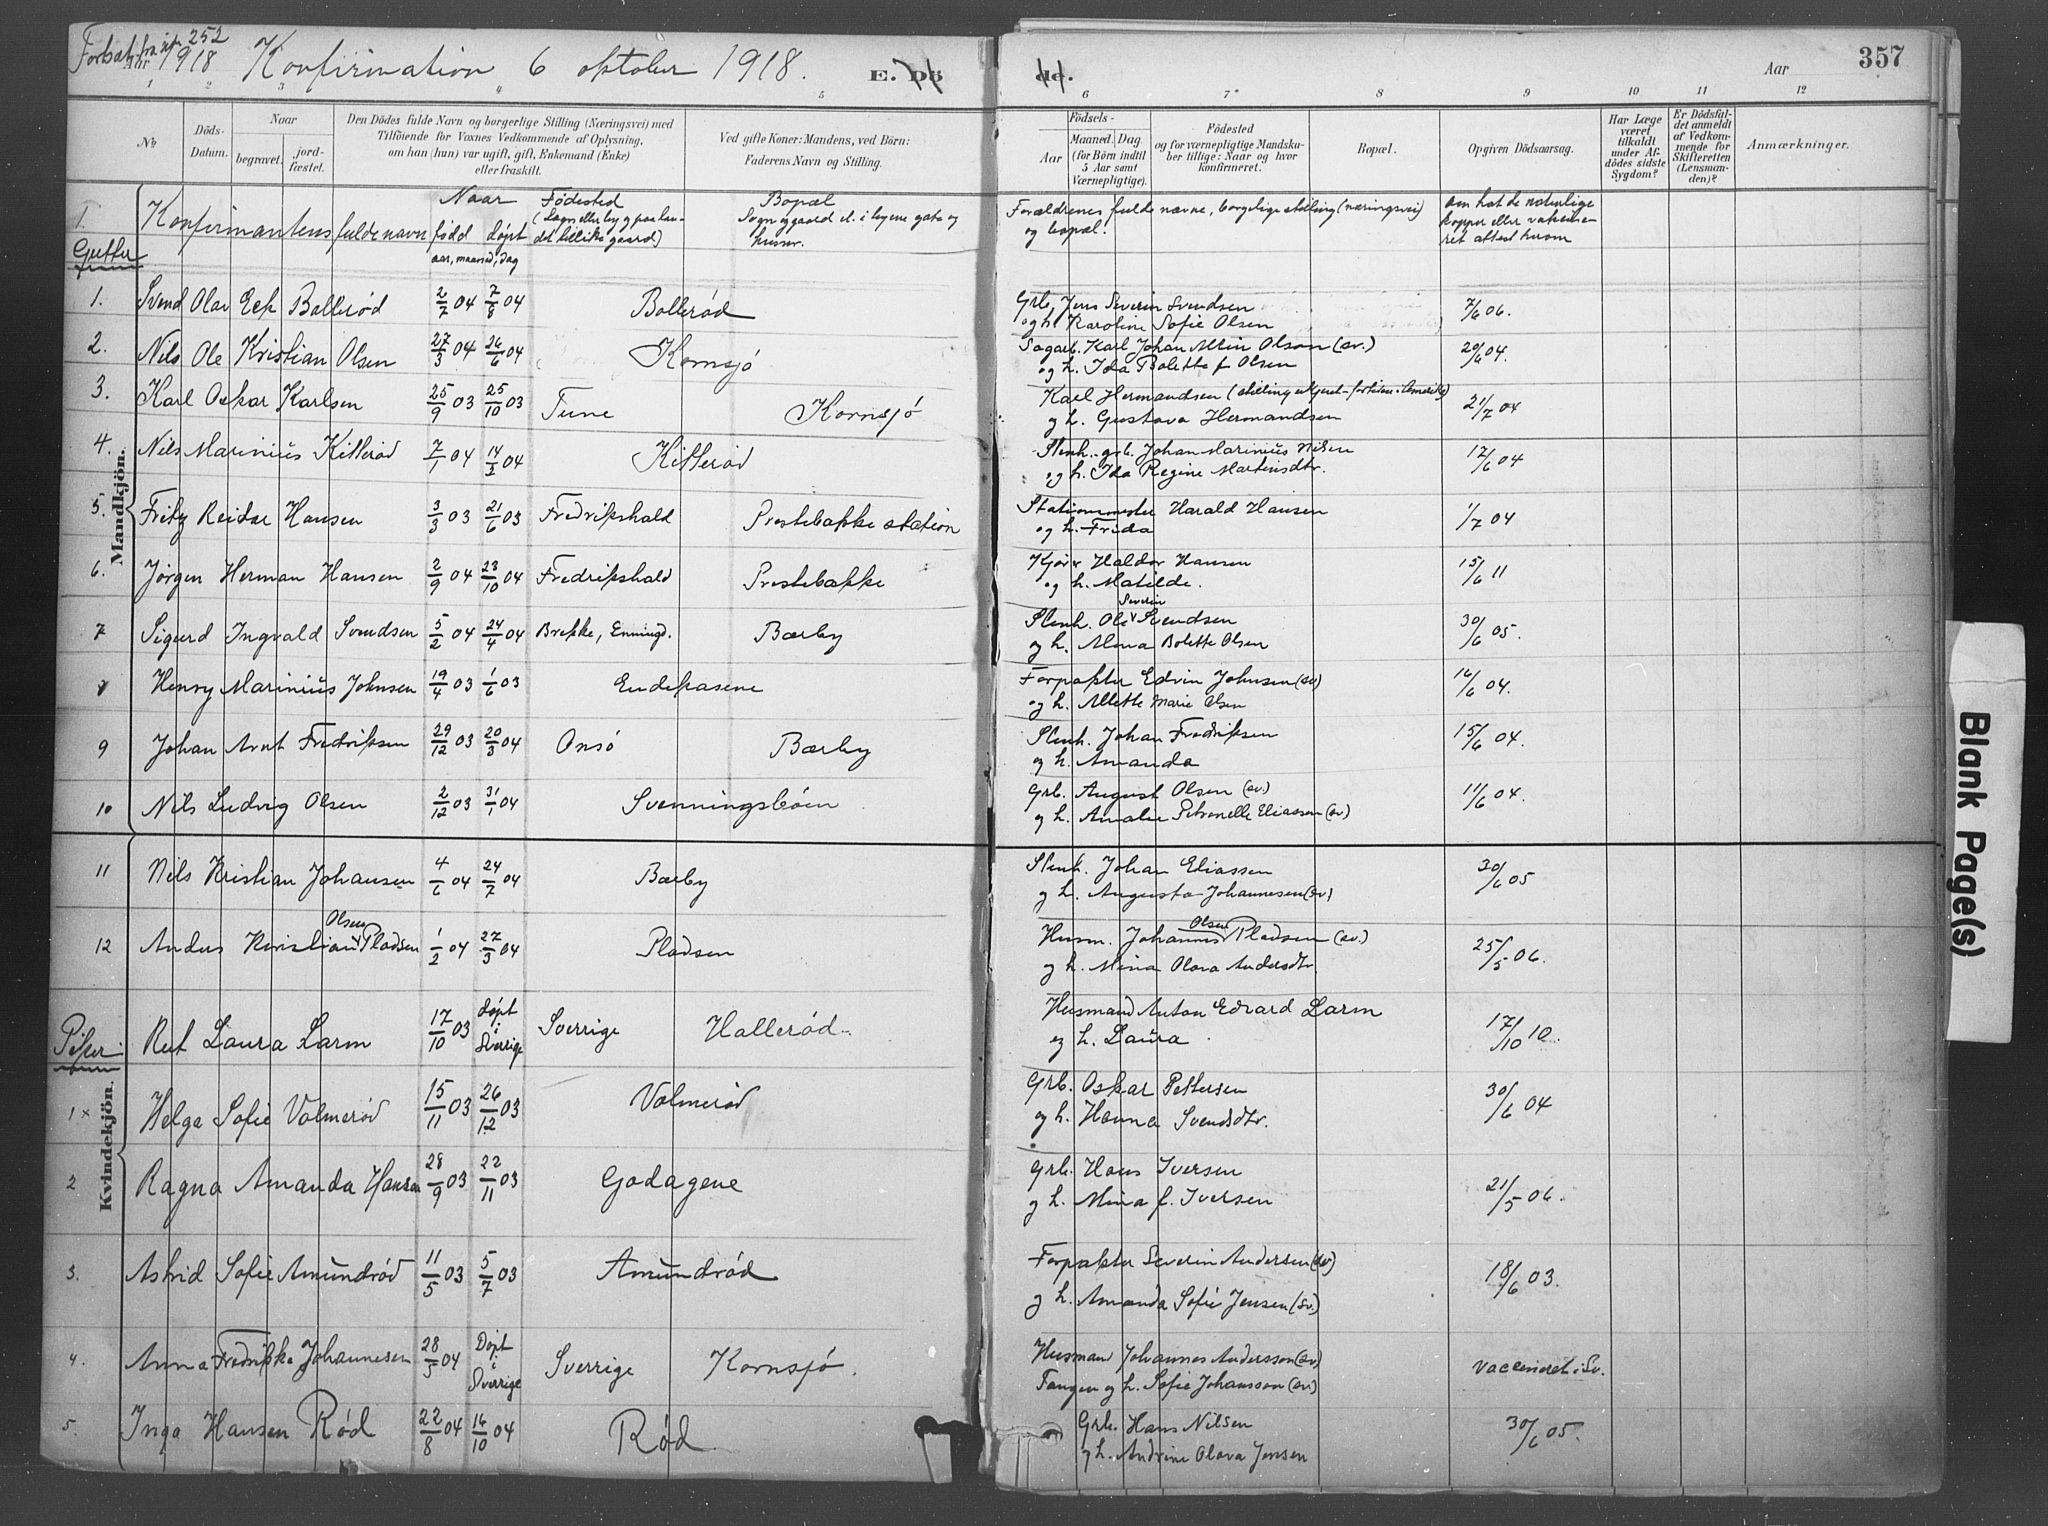 Fortsat fra side 252
Aar 1918 Konfirmation 6 oktober 1918. E. Dö
de. Aar 357
1 2 3 4 5
6 7* 8 9 10 11 12
No Döds-Datum. Naar begravet. jordfæstet.
Den Dödes fulde Navn og borgerlige Stilling (Næringsvei) med
Tilföiende for Voxnes Vedkommende af Oplysning,
om han (hun) var ugift, gift, Enkemand (Enke)
eller fraskilt.
Ved gifte Koner: Mandens, ved Börn:
Faderens Navn og Stilling.
Födsels-
Aar Maaned. Dag.
(for Börn indtil
5 Aar samt
Værnepligtige).
Födested
og for værnepligtige Mandska-
ber tillige: Naar og hvor
konfirmeret.
Bopæl.
Opgiven Dödsaarsag.
Har Læge
været
tilkaldt
under Af-
dödes sidste
Sygdom?
Er Dödsfal-
det anmeldt
af Vedkom-
mende for
Skifteretten
(Lensman-
den)?
Anmærkninger.
Konfirmantens fulde navn
Naar
född döpt
aar, maaned, dag
Födested
(Sogn eller by og paa lan-
det tillike gaard)
Bopæl
Sogn og gaard el. i byene gate og
husnr.
Forældrenes fulde navne, borgelige stilling (næringsvei)
og bopæl.
om hat de naturlige
kopper eller vaksine-
ret attest hvem
Gutter
Mandkjön.
1. Svend Olav Eek Bollerød 2/7 04 7/8 04 Bollerød
Grb. Jens Severin Svendsen 7/6 06.
og h. Karoline Sofie Olsen
2. Nils Ole Kristian Olsen 27/3 04 26/6 04 Kornsjø
Sagarb. Karl Johan Olson (sv.) 20/6 04.
og h. Ida Bolette f. Olsen
3. Karl Oskar Karlsen 25/9 03 25/10 03 Tune Kornsjø
Karl Hermandsen 21/7 04
og h. Gustava Hermandsen
4. Nils Marinius Kitterød 7/1 04 14/2 04 Kitterød
Stenh. grb. Johan Marinius Nilsen 17/6 04
og h. Ida Regine Martinsdtr.
5. Fritz Reidar Hansen 3/3 03 21/6 03 Fredrikshald Prestebakke station
Stationmester Harald Hansen 1/7 04
og h. Frida
6. Jörgen Herman Hansen 2/9 04 23/10 04 Fredrikshald Prestebakke
Kjører Haldor Hansen 15/6 11
og h. Matilde.
7 Sigurd Ingvald Svendsen 5/2 04 24/4 04 Brekke, Enningd. Bærby
Stenh. Ole Severin Svendsen 30/6 05.
og h. Alma Bolette Olsen
8 Henry Marinius Johnsen 19/4 03 1/6 03 Endekasene
Forpakter Edvin Johnsen (sv) 16/6 04.
og h. Alette Marie Olsen
9 Johan Arnt Fredriksen 29/12 03 20/3 04 Onsö Bærby
Stenh. Johan Fredriksen 15/6 04.
og h. Amanda
10 Nils Ludvig Olsen 2/12 03 31/1 04 Svenningsbøen
Grb. August Olsen (sv.) 11/6 04.
og h. Amalie Petronelle Eliassen (sv)
11 Nils Kristian Johansen 4/6 04 24/7 04 Bærby
Stenh. Johan Eliassen 30/6 05
og h. Augusta Johannesen (sv)
12 Anders Kristian Olsen Pladsen 1/2 04 27/3 04 Pladsen
Husm. Johannes Olsen Pladsen (sv.) 25/5 06.
og h. Mina Olava Andersdtr.
Piker
Kvindekjön.
Rut Laura Larm 17/10 03 døpt i Sverrige Sverrige Hallerød
Husmand Anton Edvard Larm 17/10 10.
og h. Laura
1 x Helga Sofie Volmerød 15/11 03 26/12 03 Volmerød
Grb. Oskar Pettersen 30/6 04
og h. Hanna Svendsdtr.
2 Ragna Amanda Hansen 28/9 03 22/11 03 Godagene
Grb. Hans Iversen 21/5 06.
og h. Mina f. Iversen
3. Astrid Sofie Amundrød 11/5 03 5/7 03 Amundrød
Forpakter Severin Andersen (sv) 18/6 03.
og h. Amanda Sofie Jensen (sv.)
4. Anna Fredrikke Johannesen 28/5 04 Døpt i Sverrige Sverrige Kornsjø.
Husmand Johannes Andersson (sv) vaccineret i Sv.
Tangen og h. Sofie Johansson (sv.)
5. Inga Hansen Rød 22/8 04 16/10 04 Rød
Grb. Hans Nilsen 30/6 05.
og h. Andrine Olava Jensen
Blank Page(s)